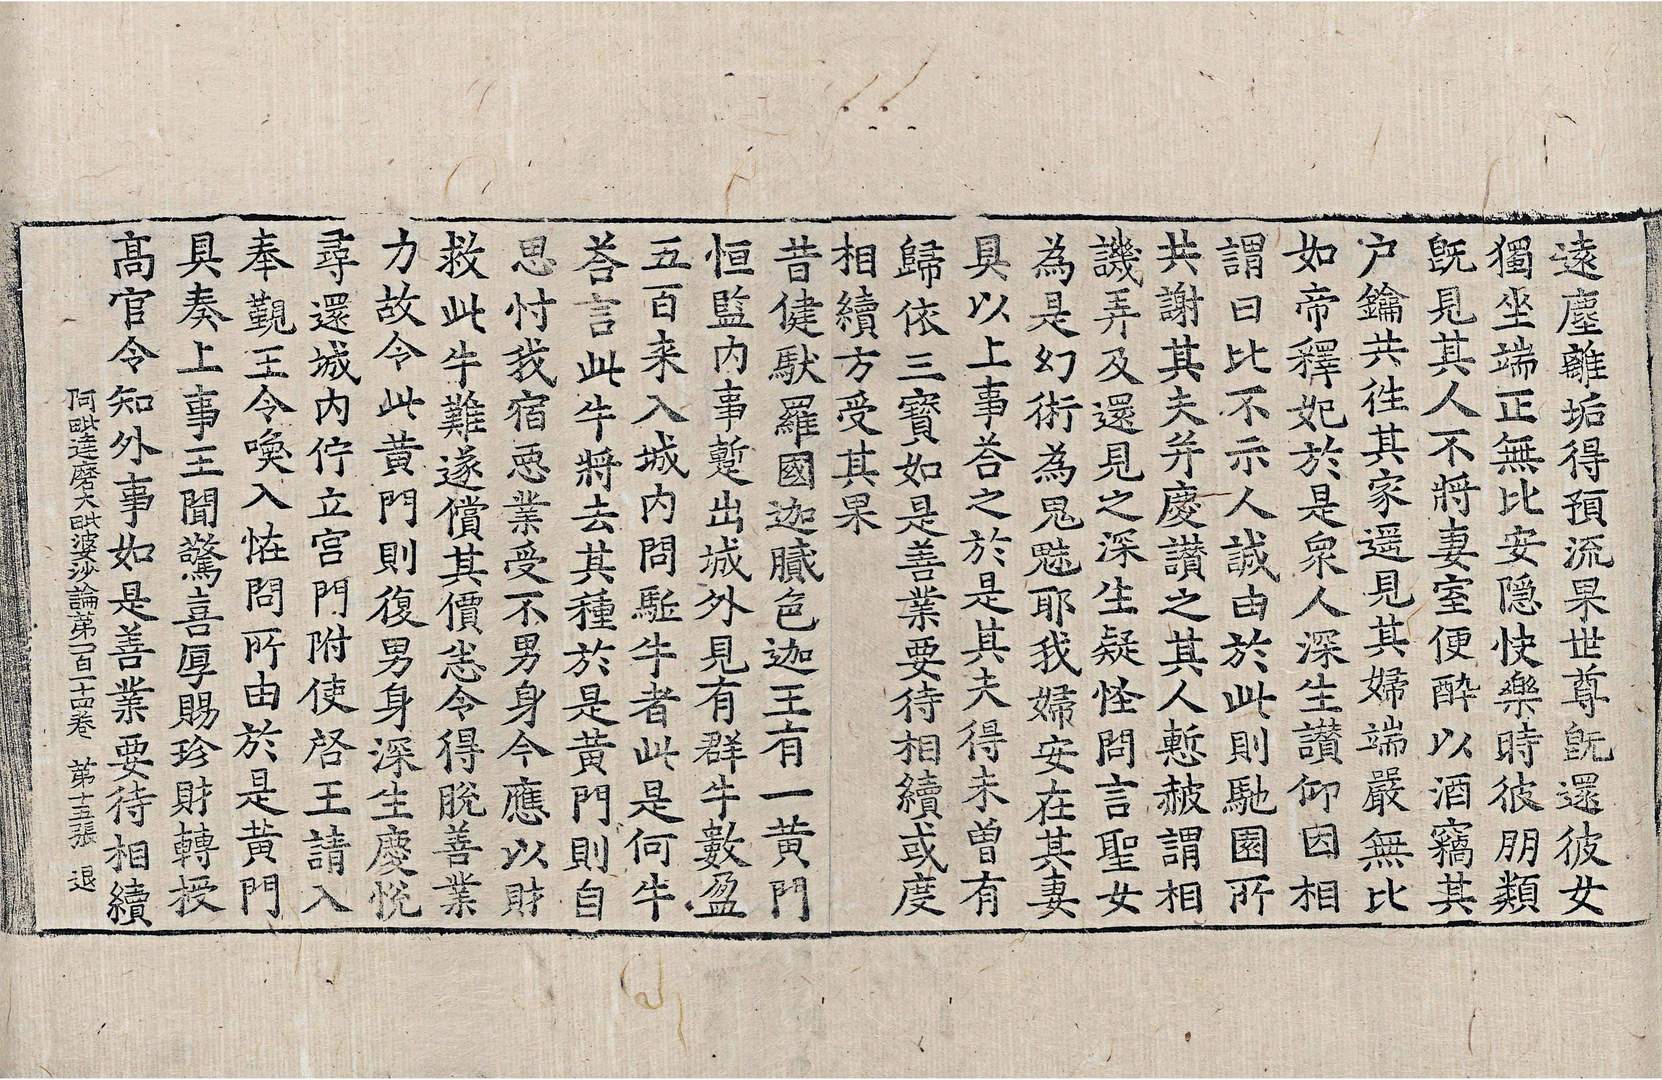 遠塵離垢得預流果世尊旣還彼女
獨坐端正無比安隱快樂時彼朋類
旣見其人不將妻室便酔以酒竊其
户鑰共徃其家遥見其婦端嚴無比
如帝釋妃於是衆人深生讃仰因相
謂曰比不示人誠由於此則馳園所
共謝其夫并慶讃之其人慙赧謂相
譏弄及還見之深生疑怪問言聖女
為是幻術為鬼魅耶我婦安在其妻
具以上事荅之於是其夫得未曾有
歸依三寶如是善業要待相續或度
相續方受其果
昔健馱羅國迦膩色迦王有一黄門
恒監内事蹔出城外見有群牛數盈
五百来入城内問駈牛者此是何牛
荅言此牛將去其種於是黄門則自
思忖我宿惡業受不男身今應以財
救此牛難遂償其價悉令得脫善業
力故令此黄門則復男身深生慶悅
尋還城内佇立宫門附使啓王請入
奉覲王令喚入恠問所由於是黄門
具奏上事王聞驚喜厚賜珍財轉授
髙官令知外事如是善業要待相續
阿毗達磨大毗婆沙論第一百一十四卷 第十五張 退